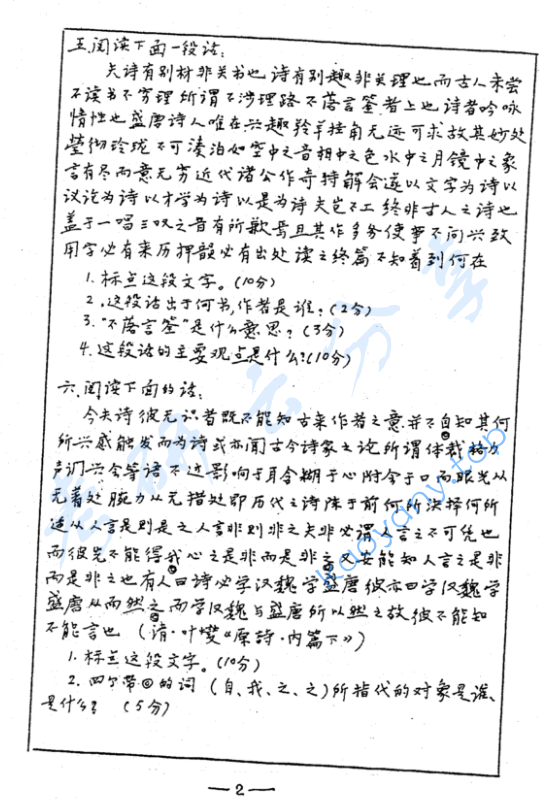 五.阅读下面一段话:
夫诗有别材非关书也诗有别趣非关理也而古人未尝
不读书不穷理所谓不涉理路不落言筌者上也诗者吟咏
情性也盛唐诗人唯在兴趣羚羊挂角无迹可求故其妙处
莹彻玲珑不可凑泊如空中之音相中之色水中之月镜中之象
言有尽而意无穷近代诸公作奇特解会遂以文字为诗以
议论为诗以才学为诗以是为诗夫岂不工终非古人之诗也
盖于一唱三叹之音有所歉焉且其作多务使事不问兴致
用字必有来历押韵必有出处读之终篇不知着到何在
1.标点这段文字。(10分)
2.这段话出于何书,作者是谁?(2分)
3.“不落言筌”是什么意思?(3分)
4.这段话的主要观点是什么?(10分)
六.阅读下面的话:
今夫诗彼无识者既不能知古来作者之意并不自知其何
所兴感触发而为诗或亦闻古今诗家之论所谓体裁格力
声调兴会等语不过影响于耳含糊于心附会于口而眼光从
无着处腕力从无措处即历代之诗陈于前何所决择何所
适从人言是则是之人言非则非之夫非必谓人言之不可凭也
而彼先不能得我心之是非而是非之又安能知人言之是非
而是非之也有人曰诗必学汉魏学盛唐彼亦曰学汉魏学
盛唐从而然之而学汉魏与盛唐所以然之故彼不能知
不能言也(清·叶燮《原诗·内篇下》)
1.标点这段文字。(10分)
2.四个带◎的词(自、我、之、之)所指代的对象是谁、
是什么?(5分)
—2—
kaoyany.top